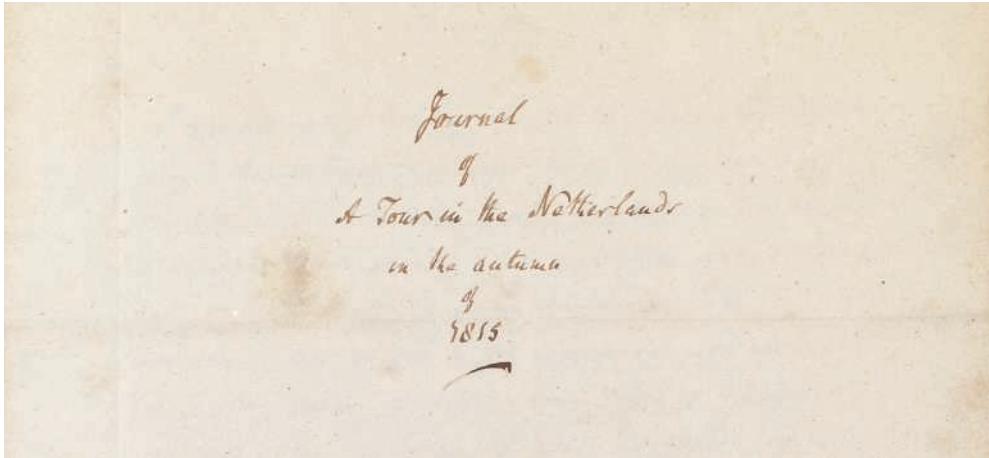 Journal
of
A Tour in the Netherlands
in the autumn
of
1815